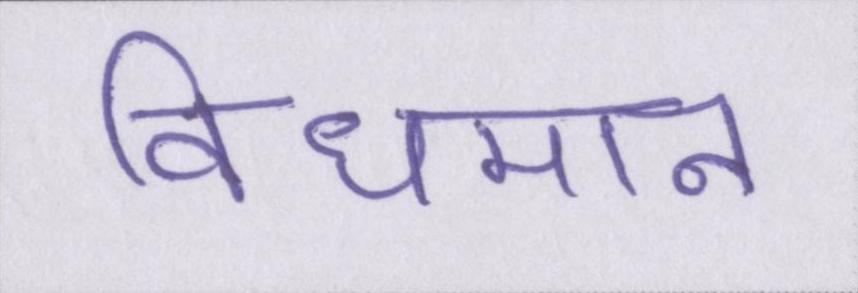 विधमान